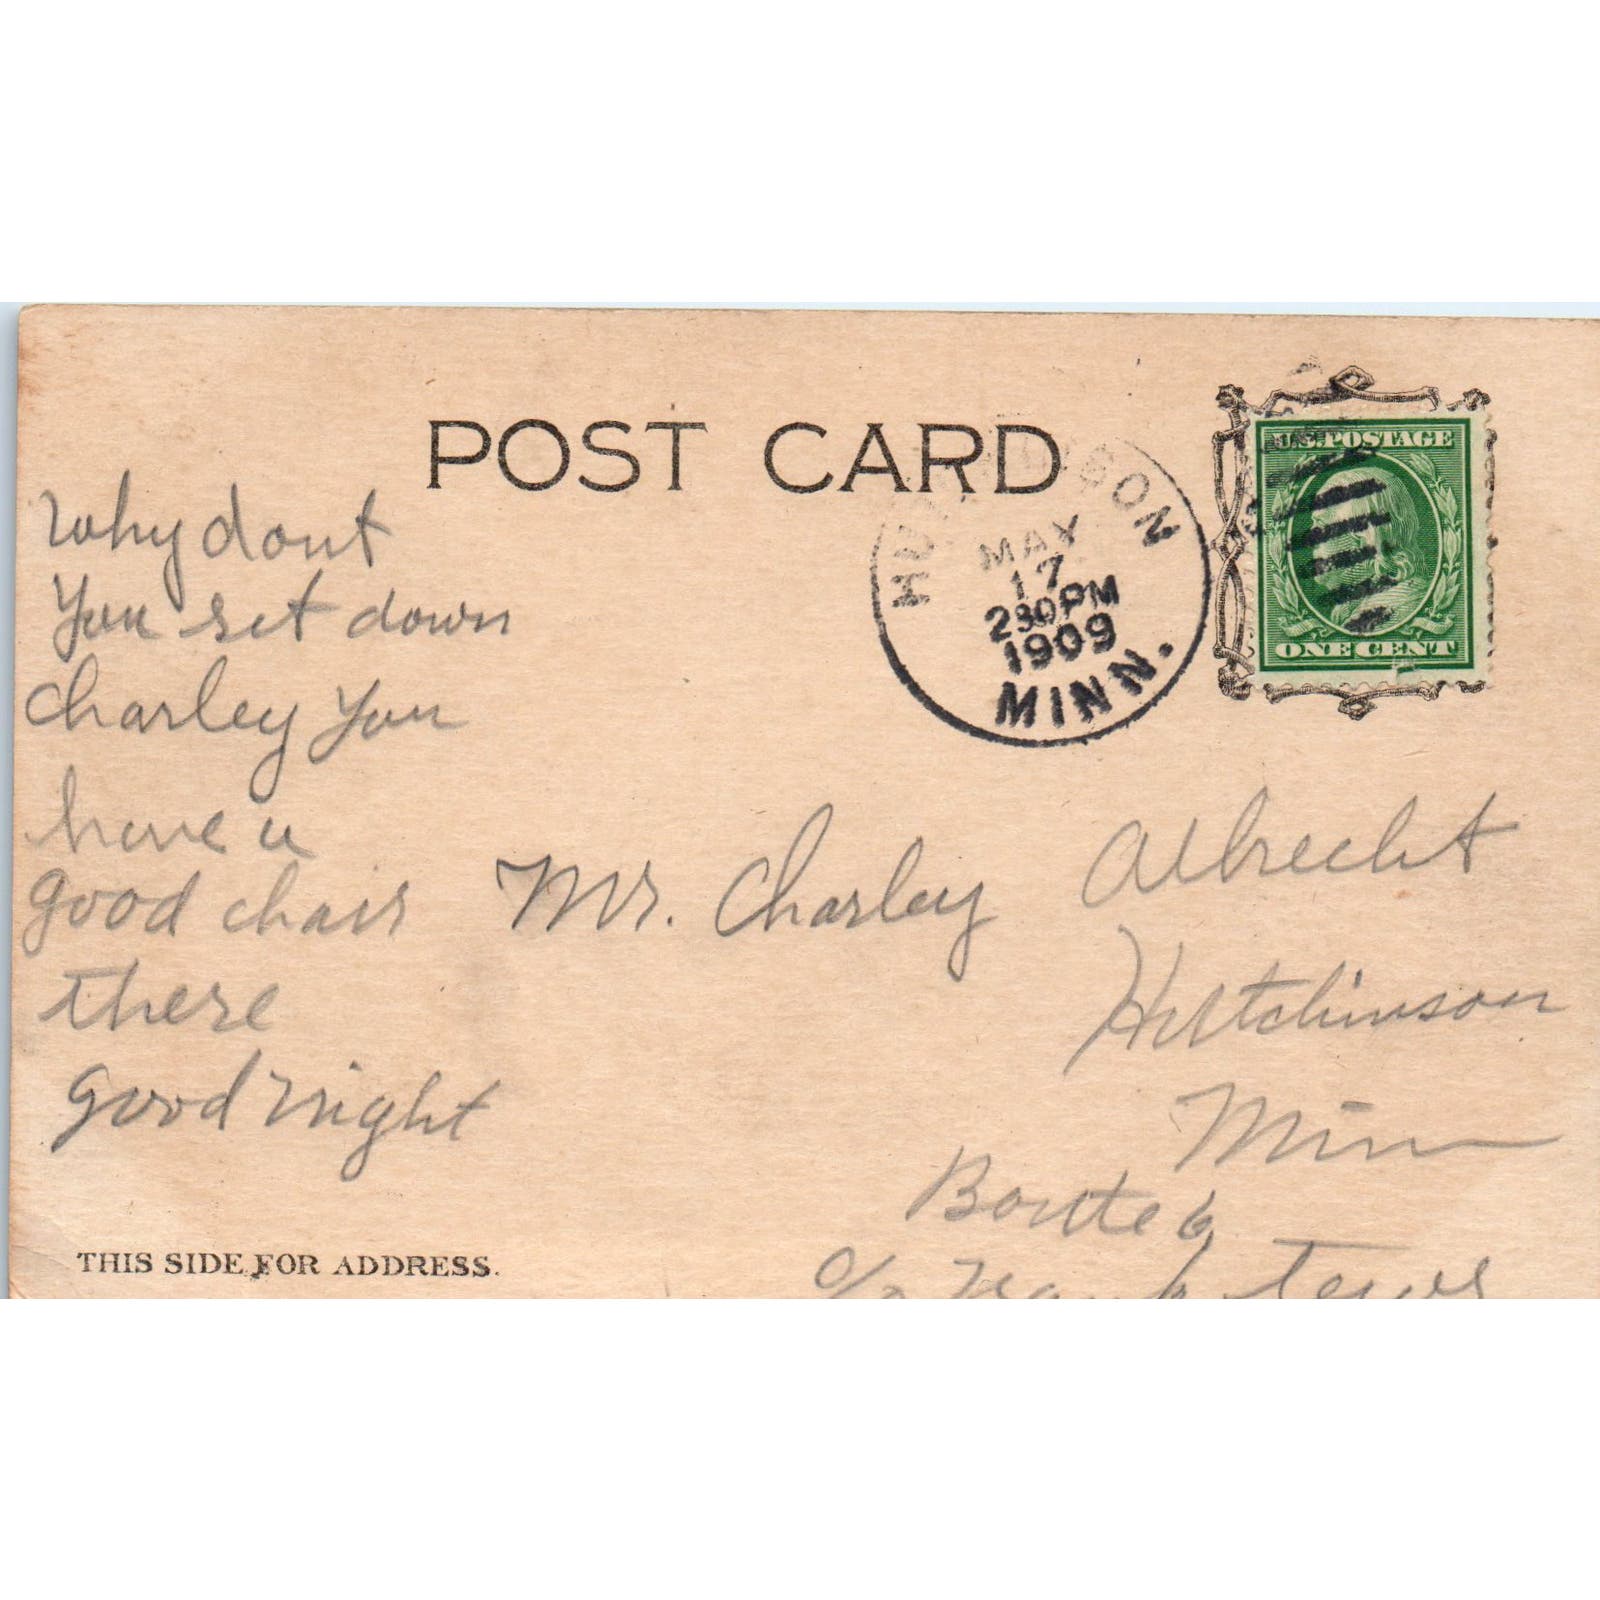 POST CARD
HUTCHINSON
MAY
17
230PM
1909
MINN.
U.S. POSTAGE
ONE CENT
Why dont
You set down
Charley You
have a
good chair
there
good night
Mr. Charley Albrecht
Hutchinson
Minn
Route 6
c/o Frank
THIS SIDE FOR ADDRESS.